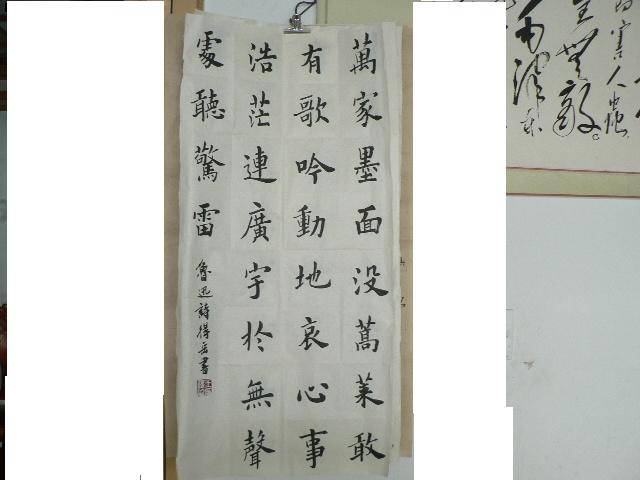 萬家墨面没蒿莱敢
有歌吟動地哀心事
浩茫連廣宇於無聲
處聽驚雷
魯迅詩得岳書
害人虫
無敵